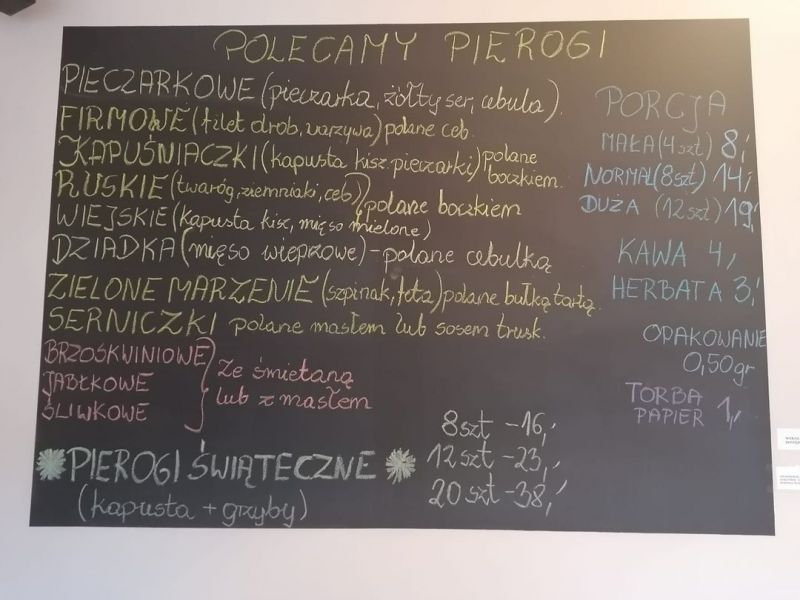 POLECAMY PIEROGI
PIECZARKOWE (pieczarka, żółty ser, cebula).
FIRMOWE (filet drob, warzywa) polane ceb.
KAPUŚNIACZKI (kapusta kisz. pieczarki) polane boczkiem.
RUSKIE (twaróg, ziemniaki, ceb)
WIEJSKIE (kapusta kisz, mięso mielone)
polane boczkiem
DZIADKA (mięso wieprzowe) - polane cebulką
ZIELONE MARZENIE (szpinak, feta) polane bułką tartą.
SERNICZKI polane masłem lub sosem trusk.
BRZOSKWINIOWE
JABŁKOWE
ŚLIWKOWE
Ze śmietaną
lub z masłem
PIEROGI ŚWIĄTECZNE
(kapusta + grzyby)
8szt - 16,-
12szt - 23,-
20 szt - 38,-
PORCJA
MAŁA (4szt) 8,-
NORMAL (8szt) 14,-
DUŻA (12szt) 19,-
KAWA 4,-
HERBATA 3,-
OPAKOWANIE
0,50gr
TORBA
PAPIER 1,-